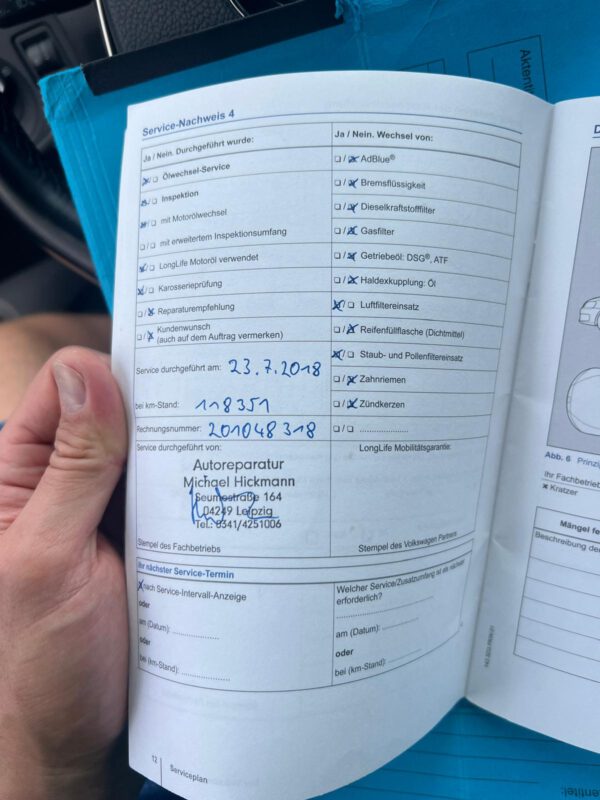 Aktent
Service-Nachweis 4
Ja / Nein. Durchgeführt wurde:
☒/☐ Ölwechsel-Service
☒/☐ Inspektion
☒/☐ mit Motorölwechsel
☐/☐ mit erweitertem Inspektionsumfang
☒/☐ LongLife Motoröl verwendet
☒/☐ Karosserieprüfung
☐/☒ Reparaturempfehlung
☐/☒ Kundenwunsch
(auch auf dem Auftrag vermerken)
Service durchgeführt am: 23.7.2018
bei km-Stand: 118351
Rechnungsnummer: 201048318
Service durchgeführt von:
Autoreparatur
Michael Hickmann
Seumestraße 164
04249 Leipzig
Tel.: 0341/4251006
Stempel des Fachbetriebs
Ja / Nein. Wechsel von:
☐/☒ AdBlue®
☐/☒ Bremsflüssigkeit
☐/☒ Dieselkraftstofffilter
☐/☒ Gasfilter
☐/☒ Getriebeöl: DSG®, ATF
☐/☒ Haldexkupplung: Öl
☒/☐ Luftfiltereinsatz
☐/☒ Reifenfüllflasche (Dichtmittel)
☒/☐ Staub- und Pollenfiltereinsatz
☐/☒ Zahnriemen
☐/☒ Zündkerzen
☐/☐ ....................
LongLife Mobilitätsgarantie:
Stempel des Volkswagen Partners
Ihr nächster Service-Termin
☒ nach Service-Intervall-Anzeige
oder
am (Datum): ....................
oder
bei (km-Stand): ....................
Welcher Service/Zusatzumfang ist als nächster
erforderlich?
....................
am (Datum): ....................
oder
bei (km-Stand): ....................
12
Serviceplan
D
Abb. 6 Prinzi
Ihr Fachbetrieb
× Kratzer
Mängel fe
Beschreibung de
ntentitel: